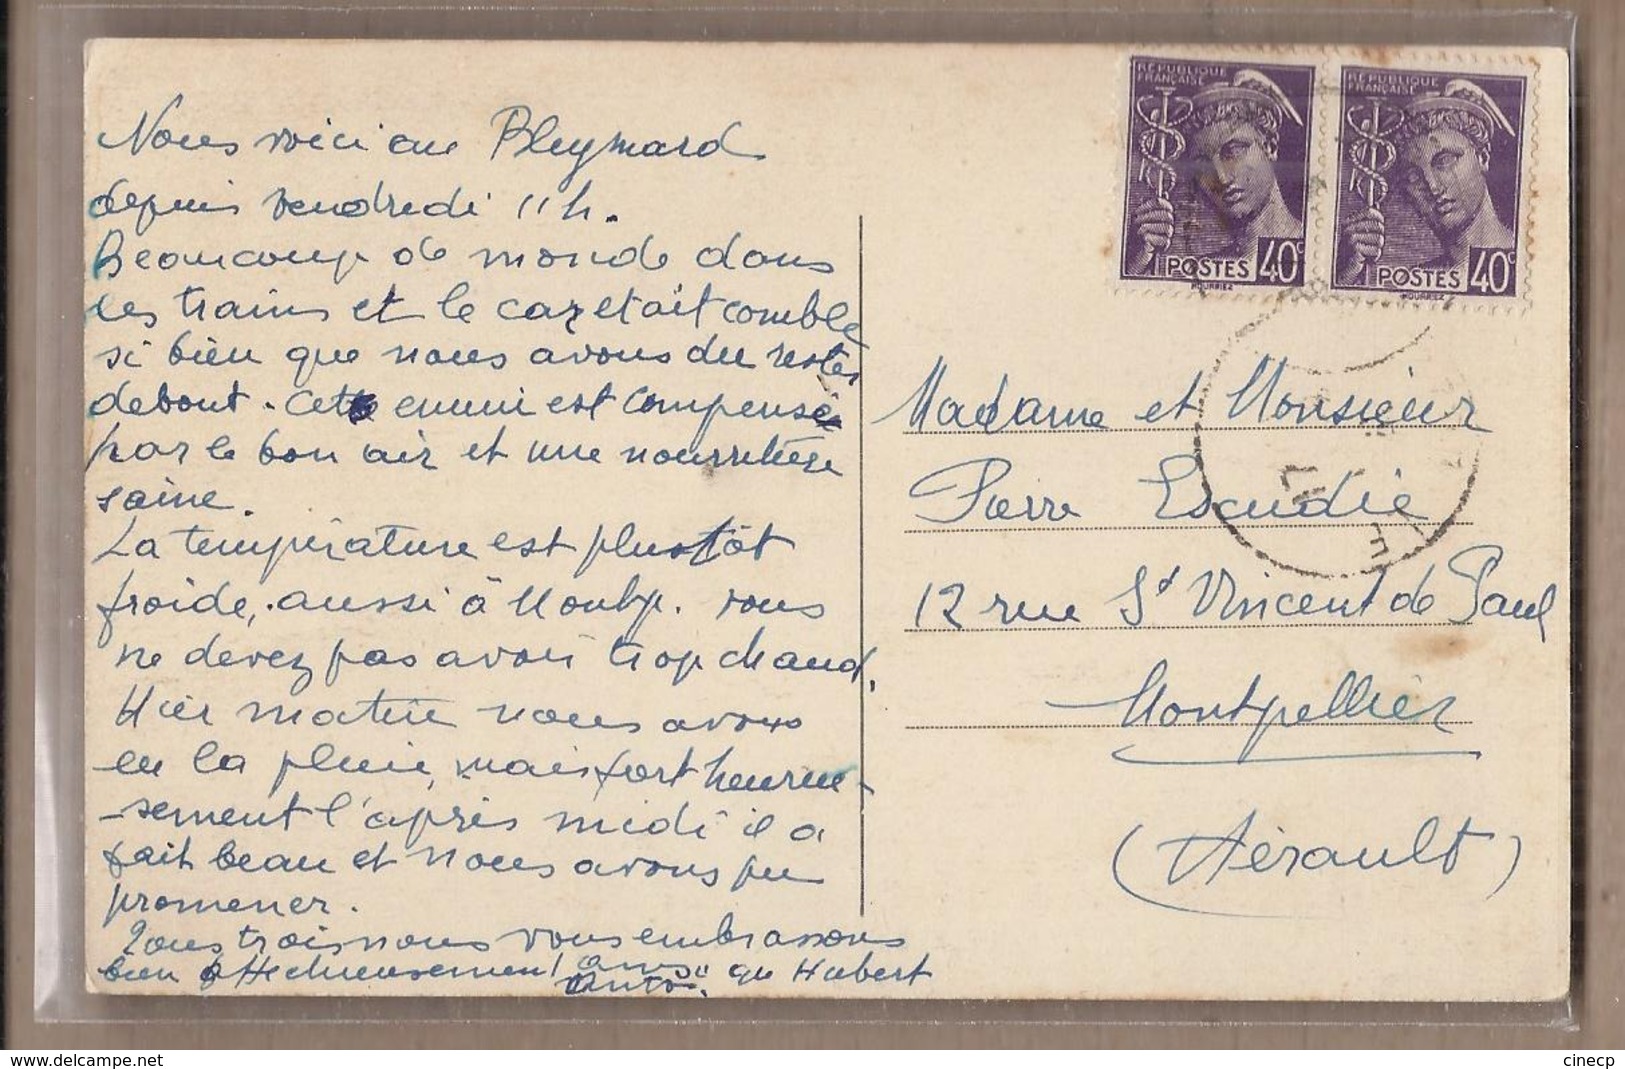 Nous voici au Bleymard
depuis vendredi 11 h.
Beaucoup de monde dans
les trains et le car etait comble
si bien que nous avons du rester
debout. cet ennui est compensé
par le bon air et une nourriture
saine.
La température est plustôt
froide, aussi à Montp. vous
ne devez pas avoir trop chaud.
Hier matin nous avons
eu la pluie, mais fort heureu-
-sement l'après midi il a
fait beau et nous avons pu
promener.
Tous trois nous vous embrassons
bien affectueusement ainsi que Hubert
REPUBLIQUE
FRANÇAISE
POSTES 40c
REPUBLIQUE
FRANÇAISE
POSTES 40c
Madame et Monsieur
Pierre Escudié
12 rue St Vincent de Paul
Montpellier
(Hérault)
www.delcampe.net
cinecp